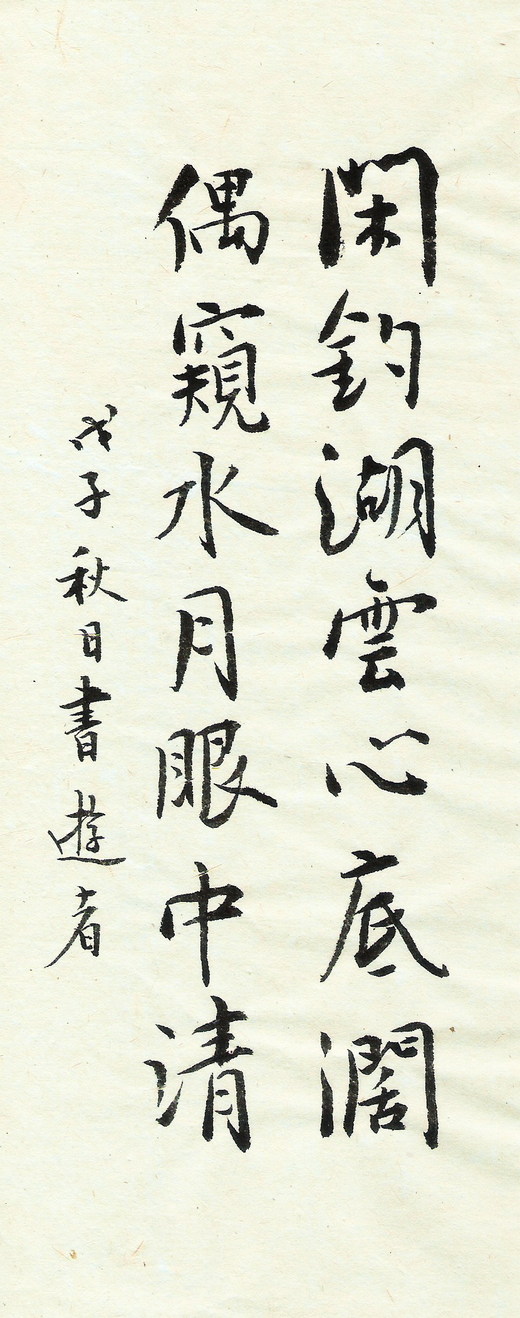 閑釣湖雲心底濶
偶窺水月眼中清
戊子秋日書遊者